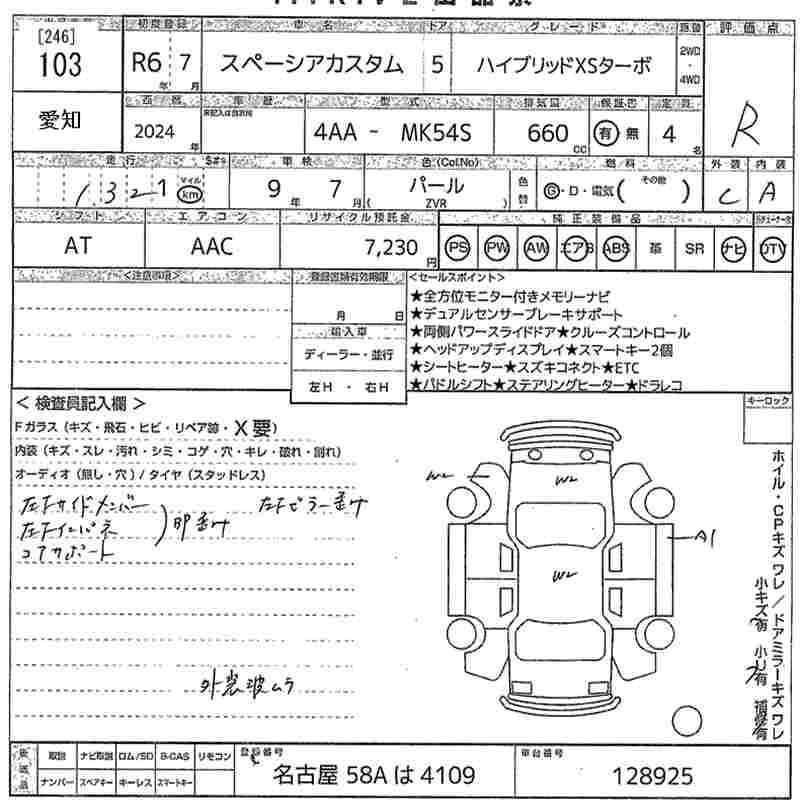 [246]
103
愛知
初度登録
R6 年 7 月
車名
スペーシアカスタム
ドア
5
グレード
ハイブリッドXSターボ
2WD
・
4WD
評価点
R
西暦
2024 年
車歴
型式
4AA - MK54S
排気量
660 cc
保証書
有 無
定員
4 名
走行
1321
マイル
km
車検
9 年 7 月
色(Col.No)
パール
( ZVR )
色替
燃料
G・D・電気( その他 )
外装
C
内装
A
シフト
AT
エアコン
AAC
リサイクル預託金
7,230 円
純正装備品
PS PW AW エアB ABS 革 SR ナビ TV
<注意事項>
登録書類有効期限
月 日
輸入車
ディーラー・並行
左H ・ 右H
<セールスポイント>
★全方位モニター付きメモリーナビ
★デュアルセンサーブレーキサポート
★両側パワースライドドア★クルーズコントロール
★ヘッドアップディスプレイ★スマートキー2個
★シートヒーター★スズキコネクト★ETC
★パドルシフト★ステアリングヒーター★ドラレコ
キーロック
< 検査員記入欄 >
Fガラス (キズ・飛石・ヒビ・リペア跡・X要)
内装 (キズ・スレ・汚れ・シミ・コゲ・穴・キレ・破れ・割れ)
オーディオ (無し・穴) / タイヤ (スタッドレス)
左Fサイドメンバー
左Fインパネ
コアサポート
左Fピラー歪み
外装波ムラ
W2
W2
W2
A1
ホイル・CPキズ ワレ / ドアミラーキズ ワレ
小キズ有 小U有 補修有
取説 ナビ取説 ロム/SD B-CAS リモコン
ナンバー スペアキー キーレス スマートキー
登録番号
名古屋 58A は 4109
車台番号
128925